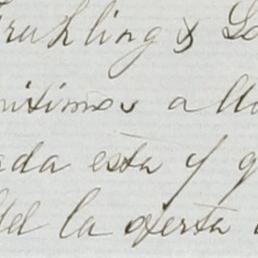 Fruhling y Go
mitimos a Ud
ada esta y q
del la oferta